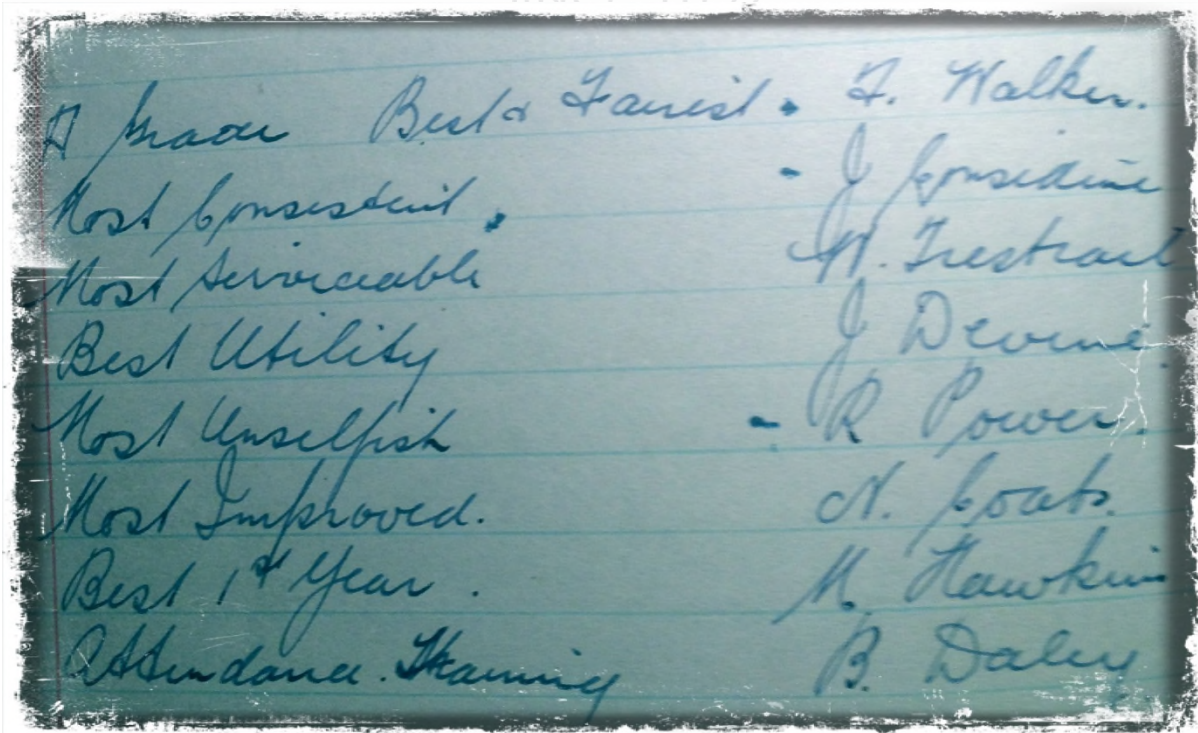 A Grade Best & Fairest - F. Walker.
Most Consistent. - J Considine
Most Serviceable W. Trestrail
Best Utility J Devine.
Most Unselfish - R Power.
Most Improved. N. Coats.
Best 1st Year. M. Hawkins
Attendance. Training B. Daley